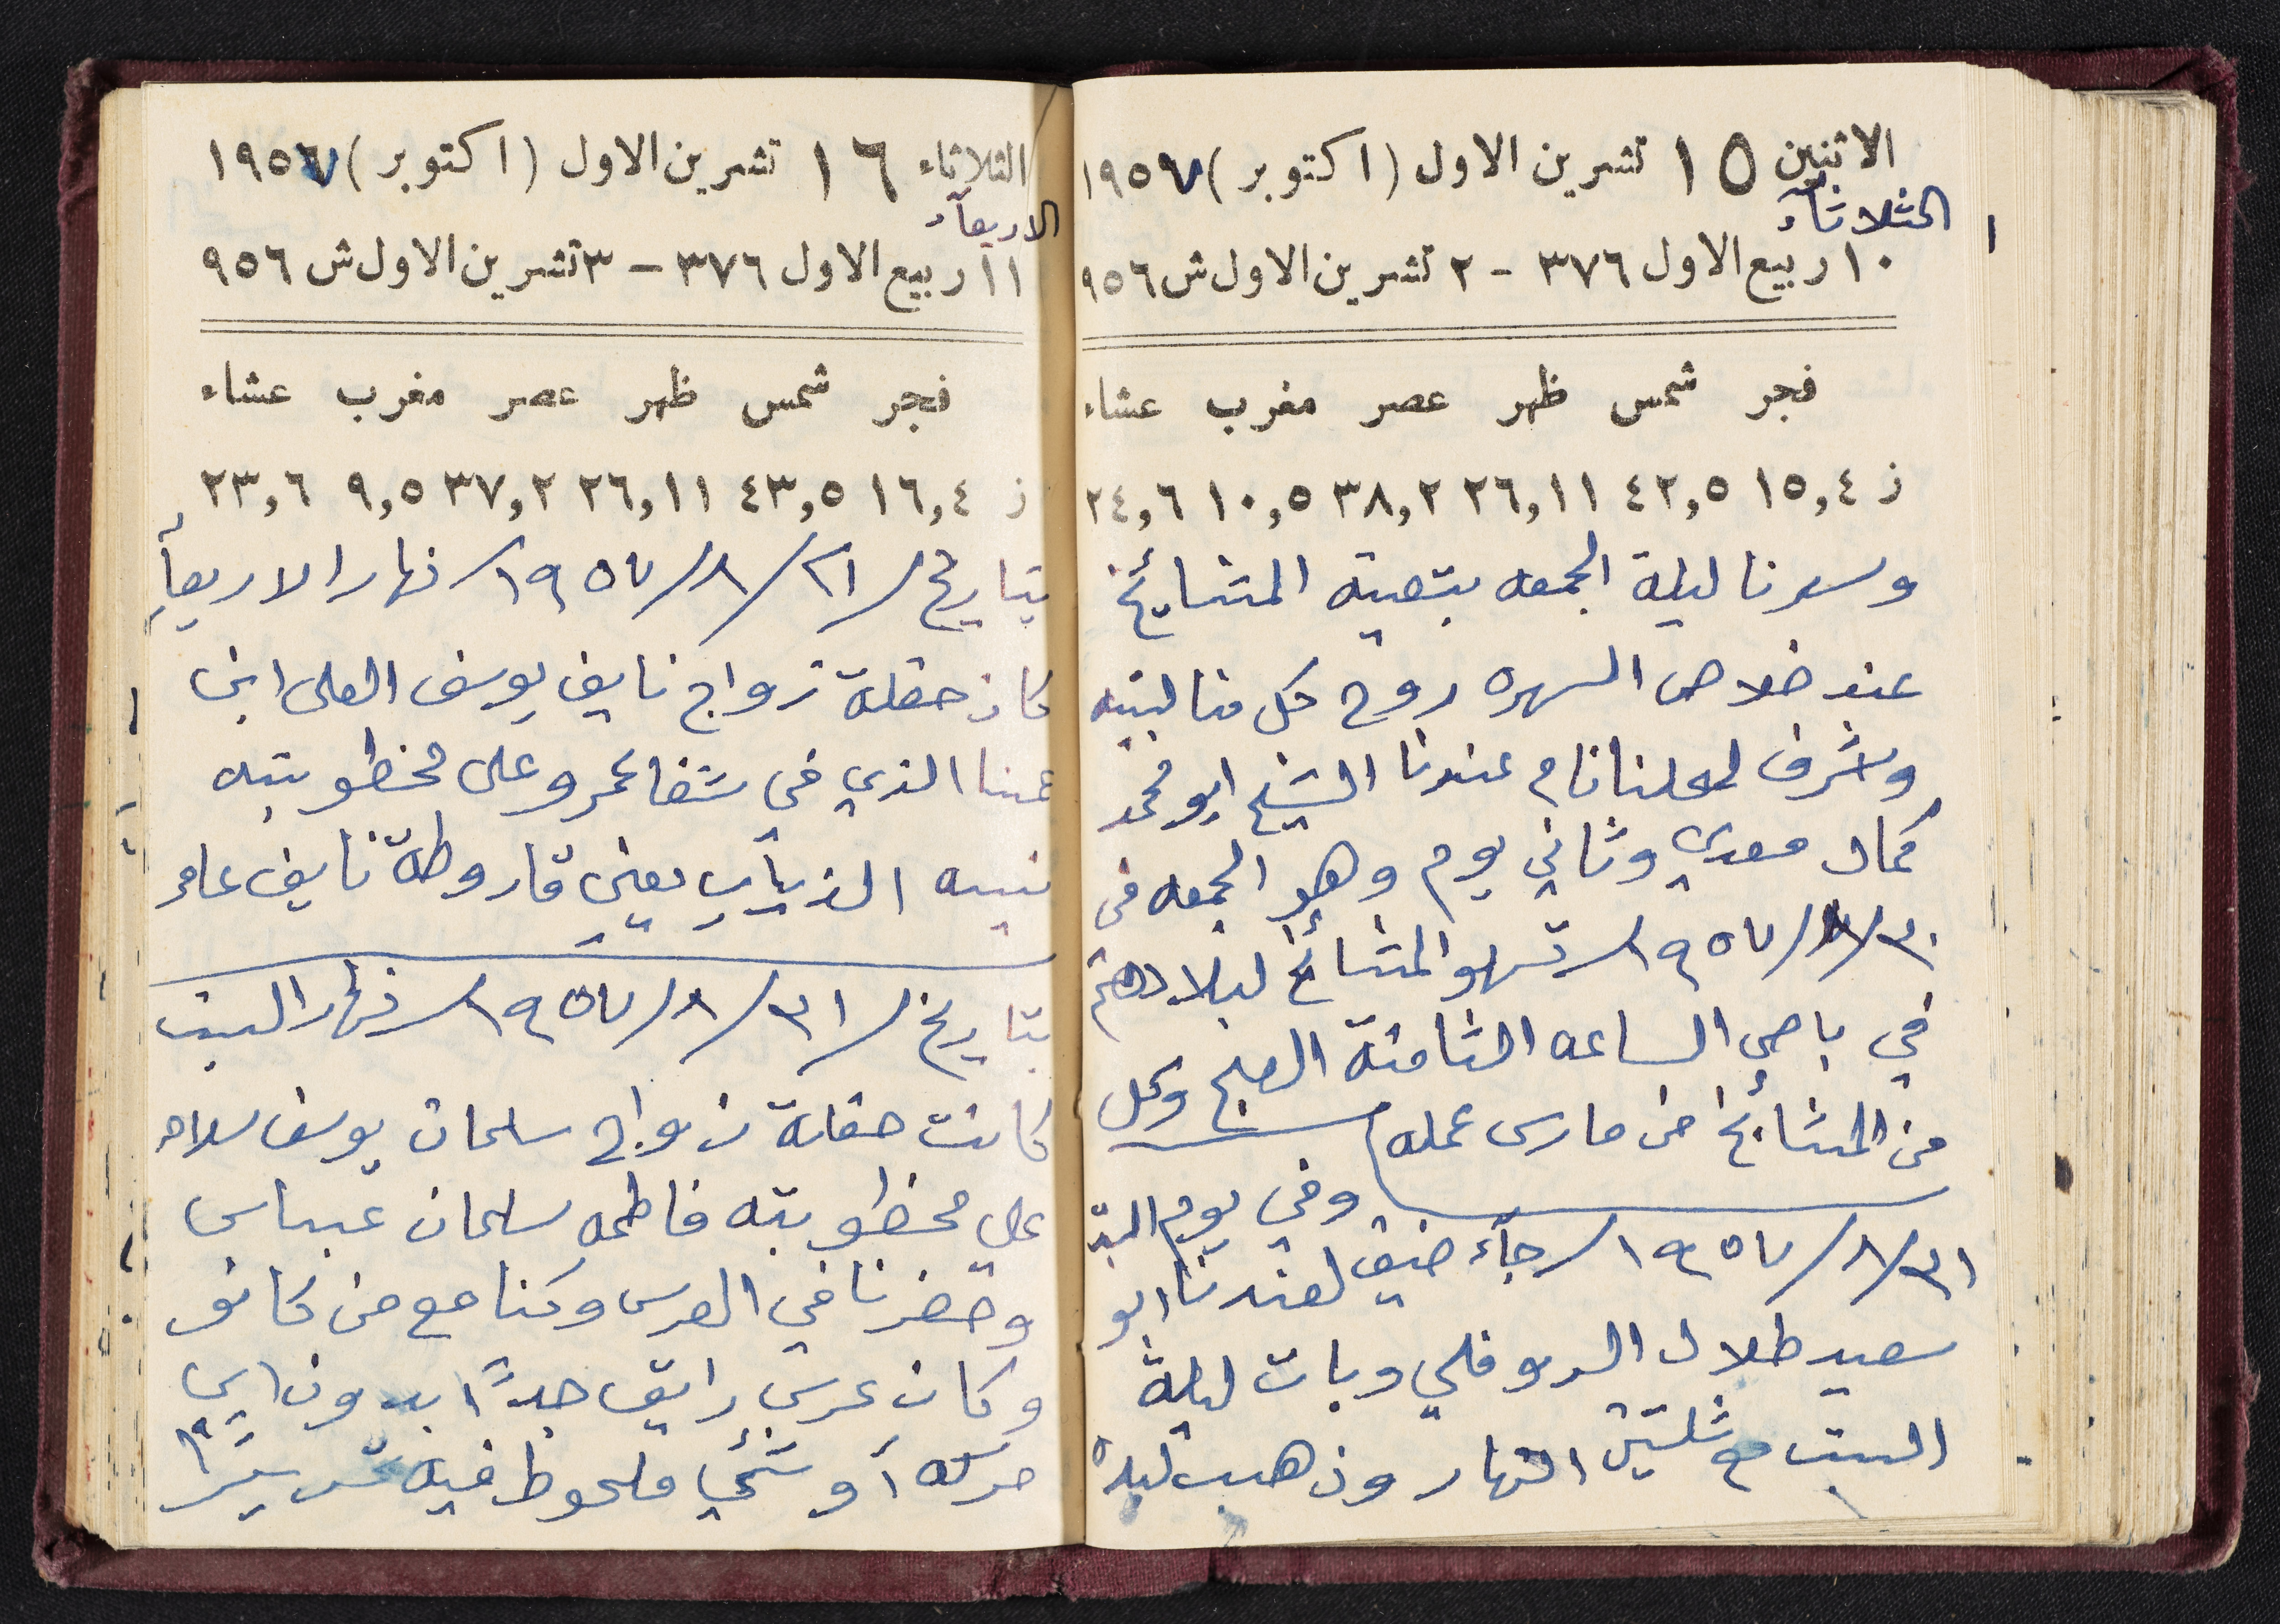 الاثنين ١٥ تشرين الاول (اكتوبر) ١٩٥٧
الثلاثاء
١٠ ربيع الاول ٣٧٦ - ٢ تشرين الاول ش ٩٥٦
فجر شمس ظهر عصر مغرب عشاء
ز ١٥,٤ ٤٢,٥ ٢٦,١١ ٣٨,٢ ١٠,٥ ٢٤,٦
وسهرنا ليلة الجمعه بتصية المشايخ
عند خلاص السهره روح كل منا لبيته
وشرف لمحلنا نام عندنا الشيخ ابو محمد
كمال معدي وثاني يوم وهو الجمعه في
٣٠/٨/١٩٥٧ تسهلو المشائخ لبلادهم
في باص الساعه الثامنة الصبح وكل
من المشائخ من مارس عمله
وفي يوم السبت
٣١/٨/١٩٥٧ جاء ضيف لعندنا ابو
سعيد طلال الدوفلي وبات ليلة
السبت مع ثلثين النهار وذهب لبلده
الثلاثاء ١٦ تشرين الاول (اكتوبر) ١٩٥٧
الاربعاء
١١ ربيع الاول ٣٧٦ - ٣ تشرين الاول ش ٩٥٦
فجر شمس ظهر عصر مغرب عشاء
ز ١٦,٤ ٤٣,٥ ٢٦,١١ ٣٧,٢ ٩,٥ ٢٣,٦
بتاريخ /٢١/٨/١٩٥٧ نهار الاربعاء
كان حفلة زواج نايف يوسف العلي ابن
عمنا الذي في شفاعمرو على مخطوبته
الذياب يعني قاروطة نايف عامر
بتاريخ /٣١/٨/١٩٥٧ نهار السبت
كانت حفلة زواج سلمان يوسف سلامه
على مخطوبته فاطمه سلمان عباس
وحضرنا في العرس وكنا مع من كانو
وكان عرس رايق جداً بدون اي
حركه أو شئي ملحوظ فيه